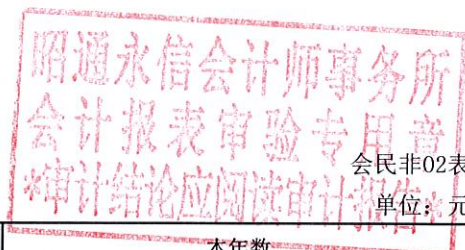 昭通永信会计师事务所
会计报表审验专用章
*审计结论应阅读审计报告*
会民非02表
单位：元
本年数